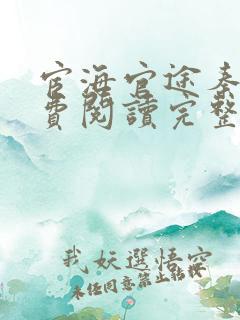 宦海官途秦
費閱讀完整
我妖選悟空
未經同意禁止轉授